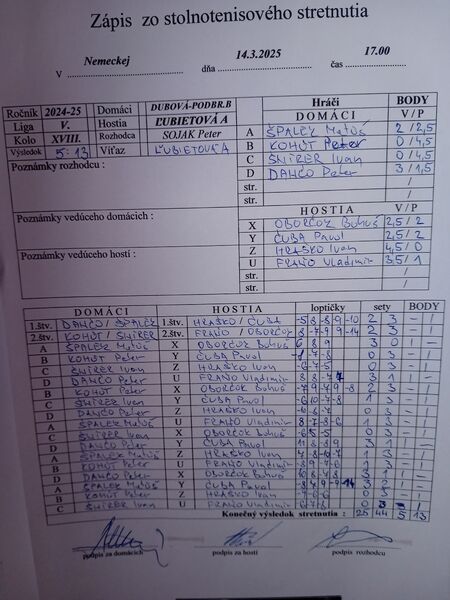 Zápis zo stolnotenisového stretnutia
V Nemeckej dňa 14.3.2025 čas 17.00
Ročník 2024-25 Domáci DUBOVÁ-PODBR.B
Liga V. Hostia ĽUBIETOVÁ A
Kolo XVIII. Rozhodca SOJAK Peter
Výsledok 5:13 Víťaz ĽUBIETOVÁ A
Poznámky rozhodcu :
Poznámky vedúceho domácich :
Poznámky vedúceho hostí :
Hráči BODY
DOMÁCI V / P
A ŠPALEK Matúš 2 / 2,5
B KOHÚT Peter 0 / 4,5
C ŠNÍRER Ivan 0 / 4,5
D DANČO Peter 3 / 1,5
str. /
str. /
HOSTIA V / P
X OBORČOK Bohuš 2,5 / 2
Y ČUBA Pavol 2,5 / 2
Z HRAŠKO Ivan 4,5 / 0
U FRAŇO Vladimír 3,5 / 1
str. /
str. /
DOMÁCI HOSTIA loptičky sety BODY
1.štv. DANČO / ŠPALEK 1.štv. HRAŠKO / ČUBA 2 3 - 1
2.štv. KOHÚT / ŠNÍRER 2.štv. FRAŇO / OBORČOK 2 3 - 1
A ŠPALEK Matúš X OBORČOK Bohuš 6 8 9 3 0 1 -
B KOHÚT Peter Y ČUBA Pavol 0 3 - 1
C ŠNÍRER Ivan Z HRAŠKO Ivan -6 -7 -5 0 3 - 1
D DANČO Peter U FRAŇO Vladimír 3 1 1 -
B KOHÚT Peter X OBORČOK Bohuš 2 3 - 1
C ŠNÍRER Ivan Y ČUBA Pavol -6 -10 -7 -8 1 3 - 1
D DANČO Peter Z HRAŠKO Ivan -6 -8 -7 0 3 - 1
A ŠPALEK Matúš U FRAŇO Vladimír 1 3 - 1
C ŠNÍRER Ivan X OBORČOK Bohuš 0 3 - 1
D DANČO Peter Y ČUBA Pavol 3 1 1 -
A ŠPALEK Matúš Z HRAŠKO Ivan 1 3 - 1
B KOHÚT Peter U FRAŇO Vladimír 1 3 - 1
D DANČO Peter X OBORČOK Bohuš 3 1 -
A ŠPALEK Matúš Y ČUBA Pavol 3 2 1 -
B KOHÚT Peter Z HRAŠKO Ivan 0 3 - 1
C ŠNÍRER Ivan U FRAŇO Vladimír 0 3 - 1
Konečný výsledok stretnutia : 25 44 5 13
podpis za domácich podpis za hostí podpis rozhodcu